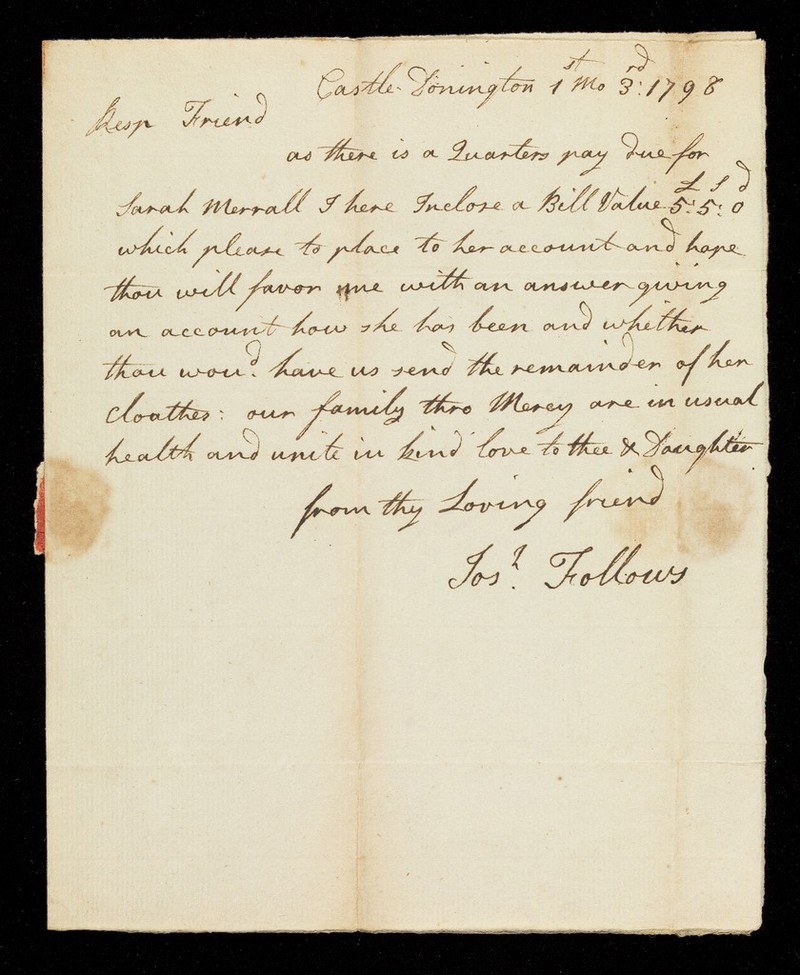 Castle Donington 1st Mo 3rd: 1798
Resp Friend
as there is a Quarters pay due for
Sarah Merrall I here Inclose a Bill Value £5: S5: d0
which please to place to her account and hope
thou will favor me with an answer giving
an account how she has been and whether
thou woud. have us send the remainder of her
Cloathes: our family thro Mercy are in usual
health and unite in kind love to thee & Daughter
from thy Loving friend
Josh. Follows